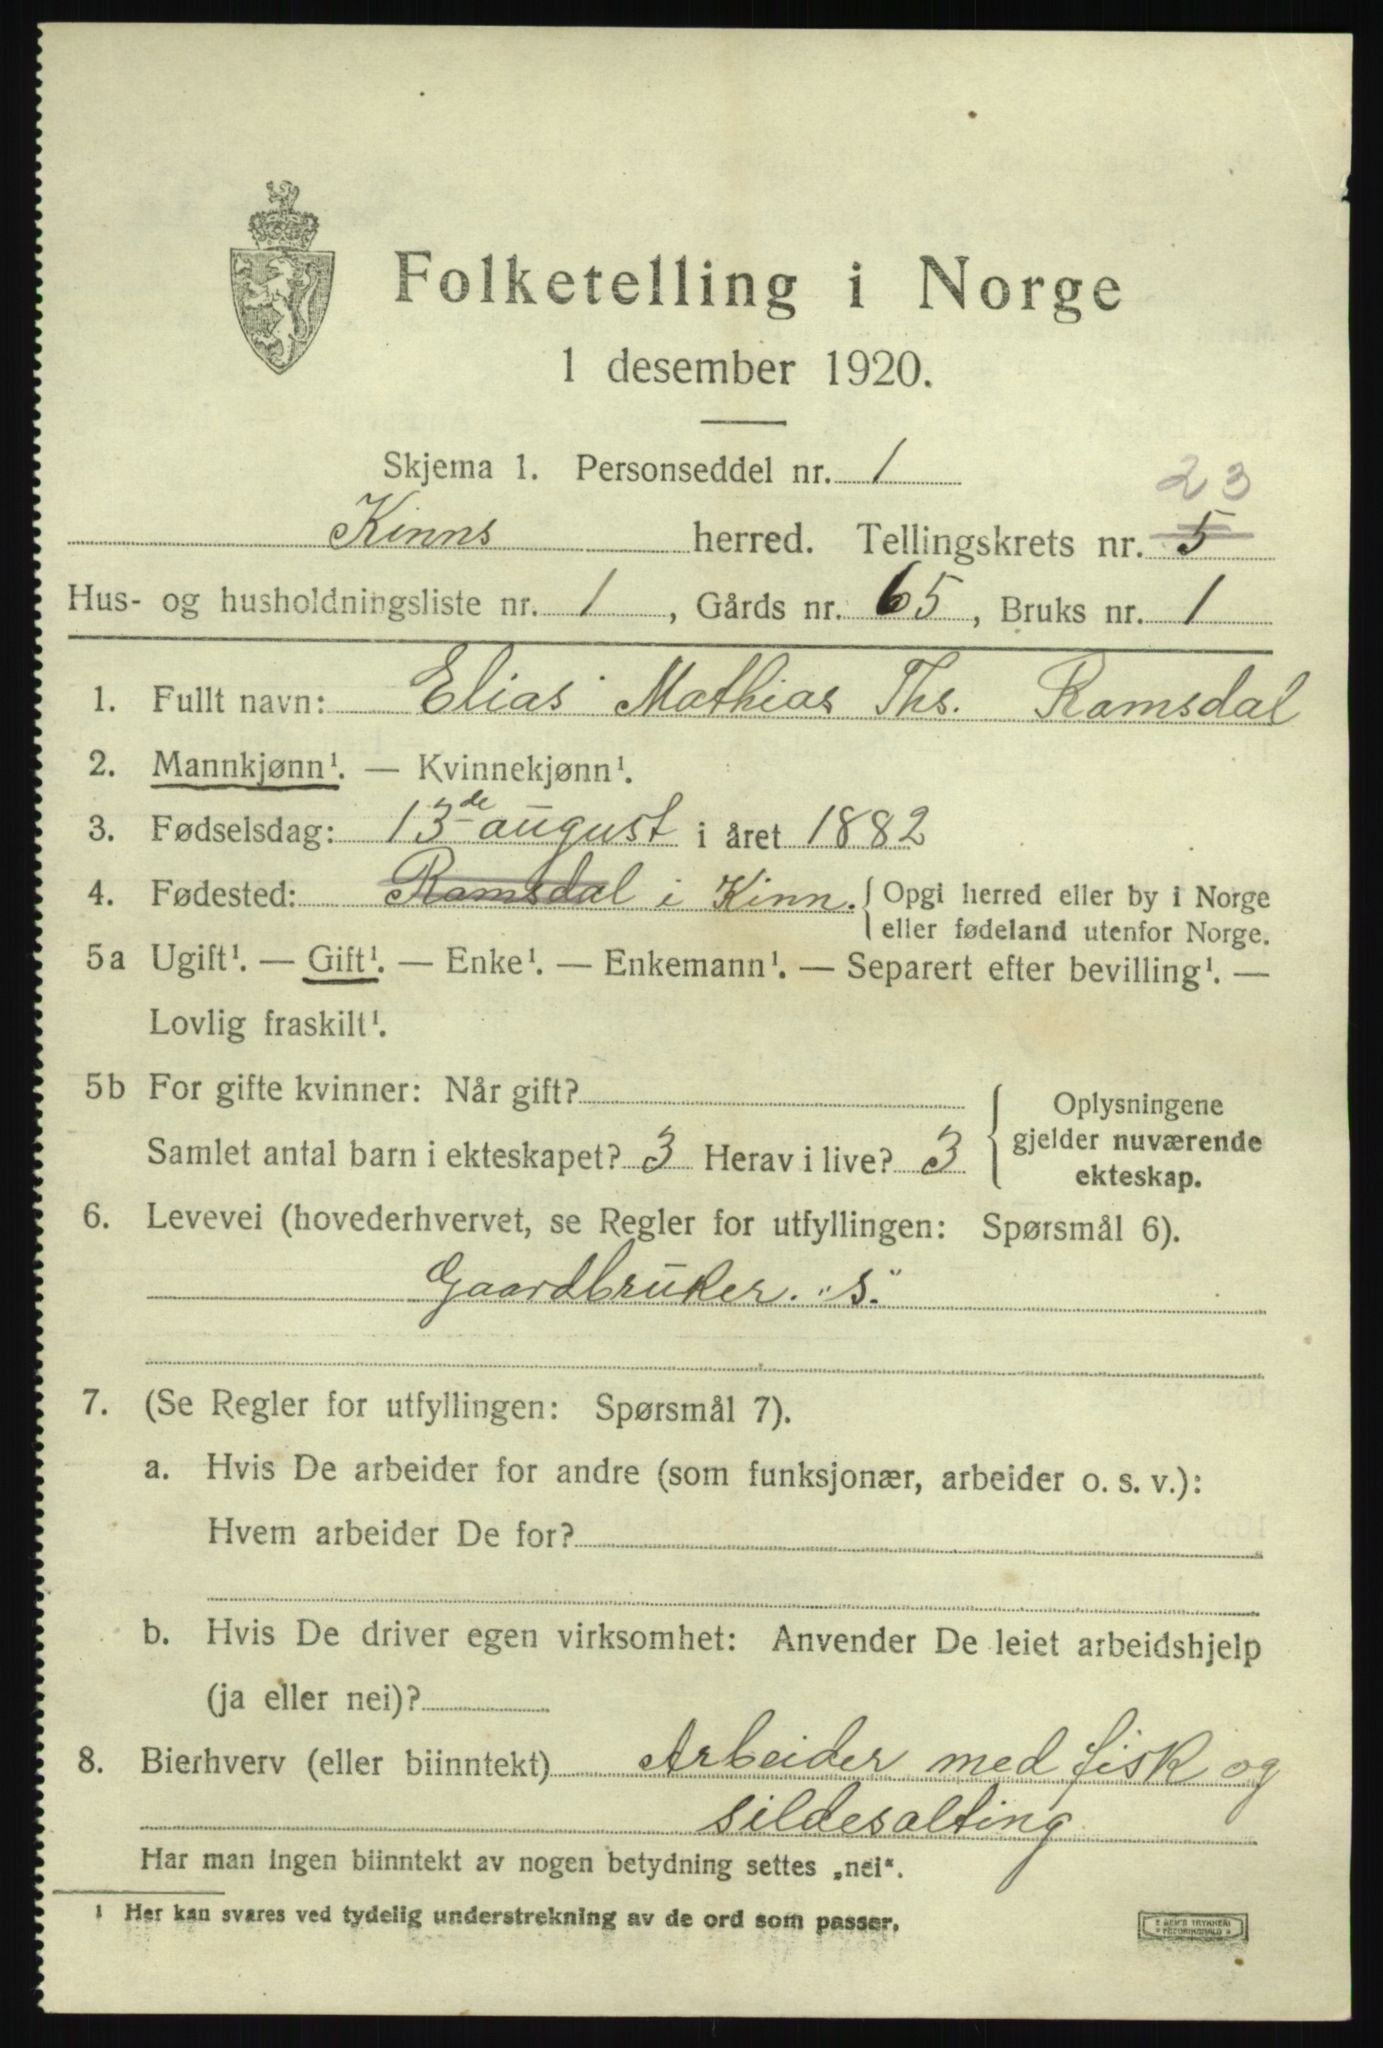 Folketelling i Norge
1 desember 1920.
Skjema 1. Personseddel nr. 1
23
Kinns herred. Tellingskrets nr. 5
Hus- og husholdningsliste nr. 1, Gårds nr. 65, Bruks nr. 1
1. Fullt navn: Elias Mathias Ths. Ramsdal
2. Mannkjønn¹. — Kvinnekjønn¹.
3. Fødselsdag: 13de august i året 1882
4. Fødested: Ramsdal i Kinn. { Opgi herred eller by i Norge
eller fødeland utenfor Norge.
5a Ugift¹. — Gift¹. — Enke¹. — Enkemann¹. — Separert efter bevilling¹. —
Lovlig fraskilt¹.
5b For gifte kvinner: Når gift?
Samlet antal barn i ekteskapet? 3 Herav i live? 3
Oplysningene
gjelder nuværende
ekteskap.
6. Levevei (hovederhvervet, se Regler for utfyllingen: Spørsmål 6).
Gaardbruker. "s."
7. (Se Regler for utfyllingen: Spørsmål 7).
a. Hvis De arbeider for andre (som funksjonær, arbeider o. s. v.):
Hvem arbeider De for?
b. Hvis De driver egen virksomhet: Anvender De leiet arbeidshjelp
(ja eller nei)?
8. Bierhverv (eller biinntekt) Arbeider med fisk og
sildesalting
Har man ingen biinntekt av nogen betydning settes „nei“.
¹ Her kan svares ved tydelig understrekning av de ord som passer.